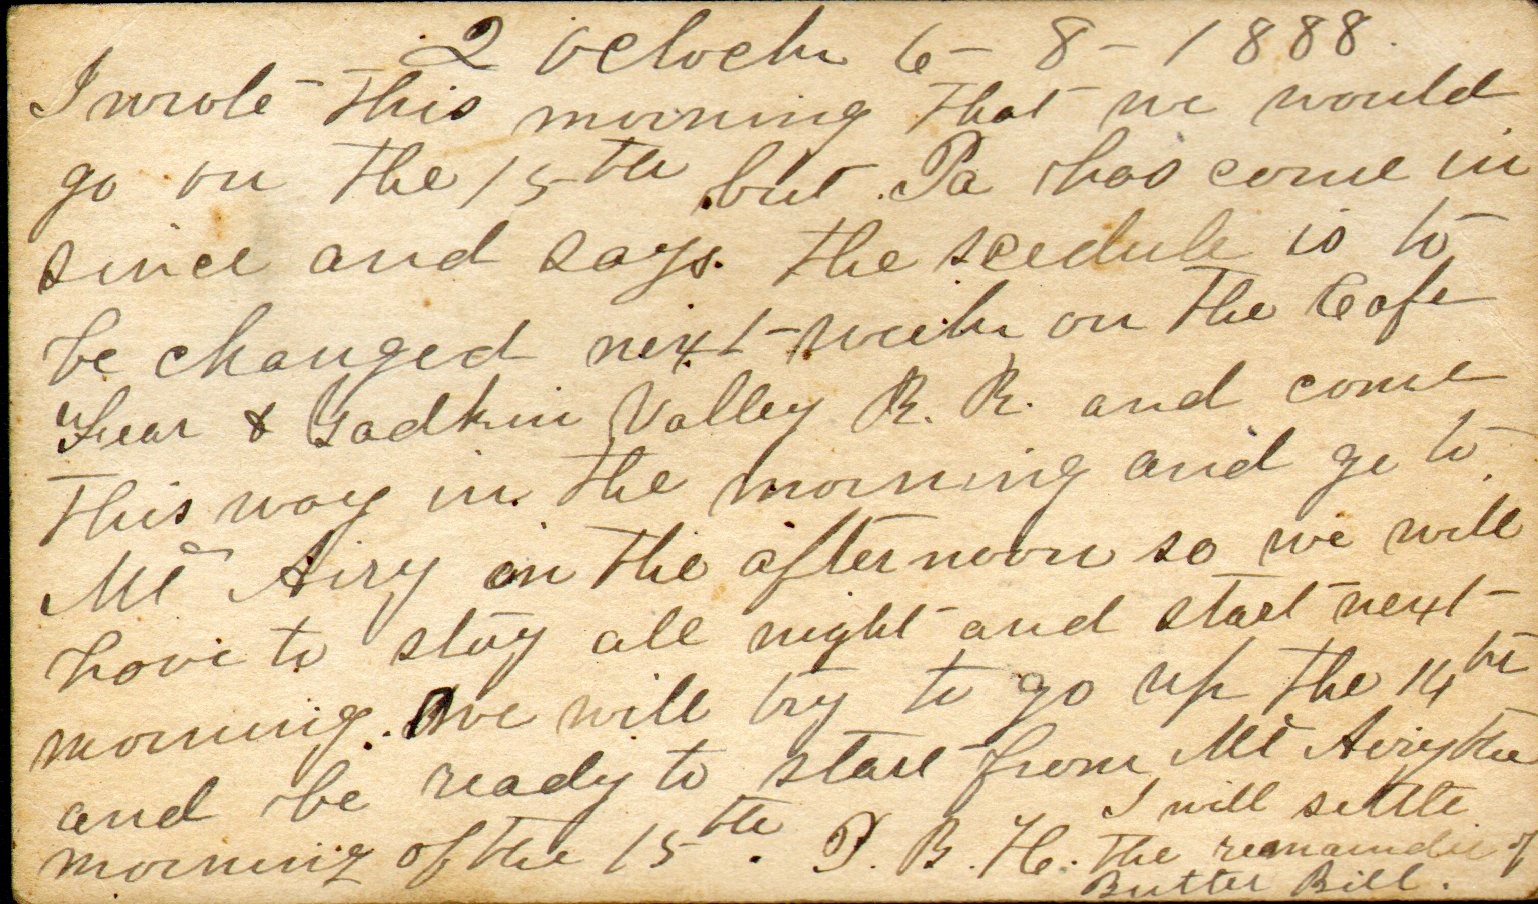 2 oclock 6 - 8 - 1888.
I wrote this morning that we would
go on the 15th but Pa has come in
since and says. the scedule is to
be changed next week on the Cape
Fear & Yadkin Valley R. R. and come
this way in the morning and go to
Mt Airy in the afternoon so we will
have to stay all night and start next
morning. we will try to go up the 14th
and be ready to start from Mt Airy the
morning of the 15th. P. B. H.
I will settle
the remainder of
Butter Bill.